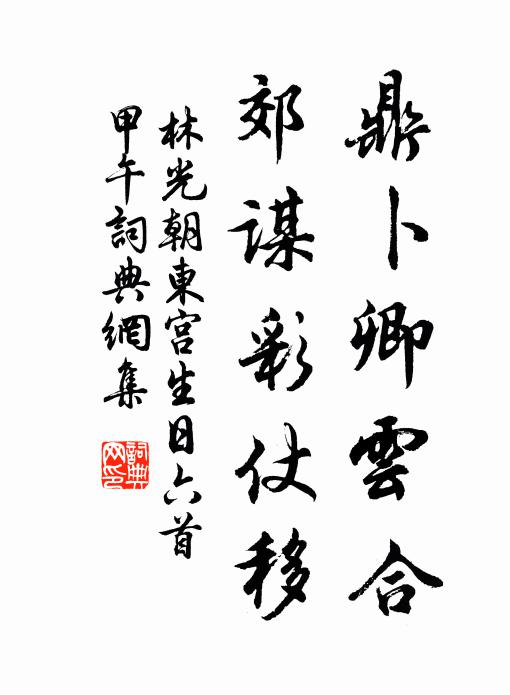 鼎卜卿雲合
郊謀彩仗移
林光朝東宮生日六首
甲午詞典網集
詞典网印